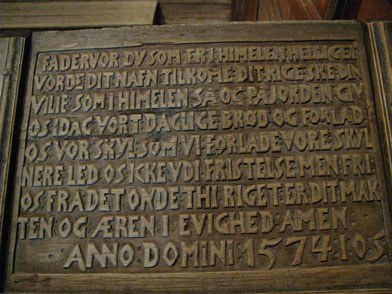 FADERVOR DV SOM ER I HIMELEN HELLIGET
VORDE DIT NAFN TILKOME DIT RIGE SKE DIN
VILIE SOM I HIMELEN SAA OG PAA JORDEN GIV
OS IDAG VORT DAGLIGE BRØD OG FORLAD
OS VOR SKYL SOM VI FORLADE VORE SKYL
NERE LED OS ICKE VDI FRISTELSE MEN FRI
OS FRA DET ONDE THI RIGET ER DIT MAK
TEN OG ÆREN I EVIGHED AMEN
ANNO DOMINI 1574 I OS